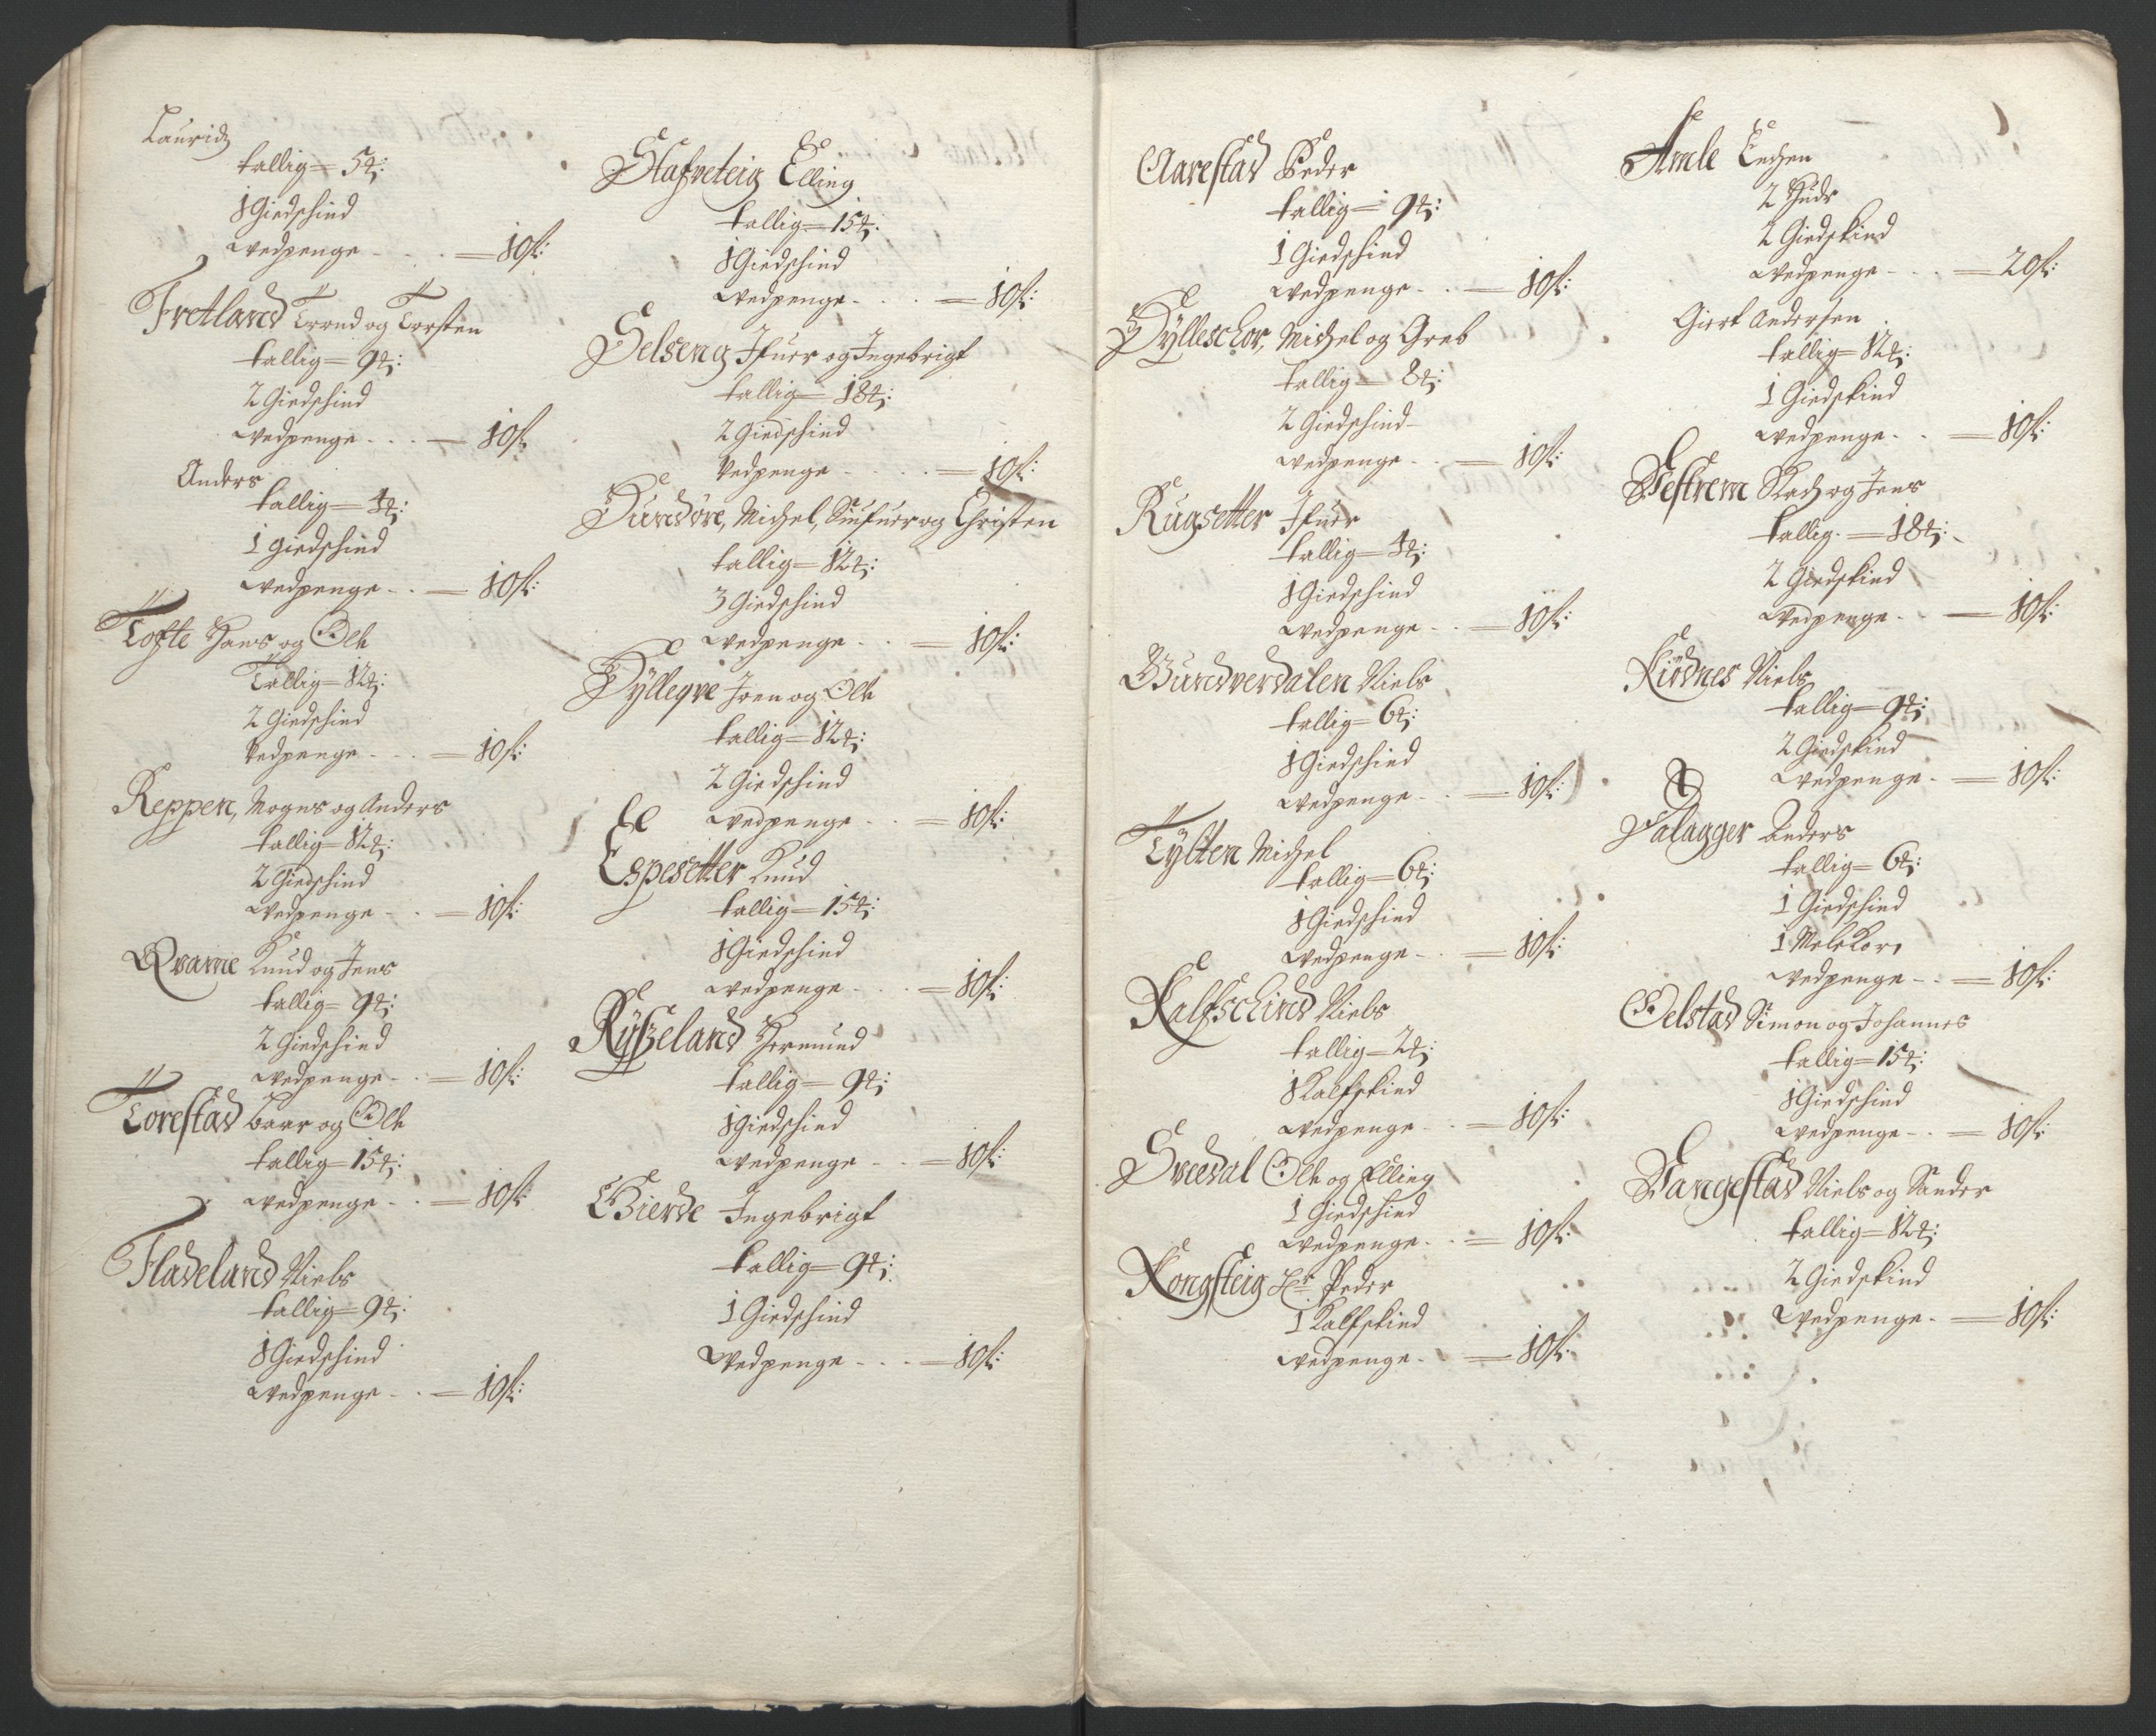 Lauridz
tallig = 5 ℔:
1 Giedschind
wedpenge - . . = 10 ß:
Fretland Trond og Torsten
tallig = 9 ℔:
2 Giedschind
wedpenge - . . = 10 ß
Anders
tallig = 4 ℔:
1 Giedschind
wedpenge - . = 10 ß:
Tofte Hans og Ole
Tallig = 12 ℔:
2 Giedschind
Vedpenge - . . = 10 ß:
Reppen, Mogns og Anders
tallig = 12 ℔:
2 Giedschind
wedpenge - . = 10 ß:
Qvame Knud og Jens
tallig = 9 ℔:
2 Giedschind
wedpenge - . = 10 ß:
Torestad Baar og Ole
tallig = 15 ℔:
wedpenge - . = 10 ß:
Fladeland Niels
tallig = 9 ℔:
1 Giedschind
wedpenge - . = 10 ß:
Stafveteig Elling
tallig = 15 ℔:
1 Giedschind
wedpenge - . . = 10 ß:
Selseng Ifuer og Ingebrigt
tallig = 18 ℔:
2 Giedschind
Vedpenge - . . = 10 ß:
Hundøre, Michel, og Christen
tallig = 12 ℔:
3 Giedschind
wedpenge - . = 10 ß:
Hylleqve Joen og Ole
tallig = 12 ℔:
2 Giedschind
wedpenge - . = 10 ß:
Espesetter Knud
tallig = 15 ℔:
1 Giedschind
wedpenge - . . = 10 ß:
Rysseland Hermund
tallig = 9 ℔:
1 Giedschind
wedpenge - . = 10 ß:
Gierde Ingebrigt
tallig = 9 ℔:
1 Giedschind
Wedpenge - . . = 10 ß:
Aarestad Peder
tallig = 9 ℔:
1 Giedschind
wedpenge - . = 10 ß:
Hylleschor, Michel og Greb
tallig = 8 ℔:
2 Giedschind
wedpenge - . = 10 ß:
Rugsetter Ifuer
tallig = 4 ℔:
1 Giedschind
wedpenge - . = 10 ß:
Gundverdalen Niels
tallig = 6 ℔:
1 Giedschind
wedpenge - . = 10 ß:
Tylten Michel
tallig = 6 ℔:
1 Giedschind
wedpenge - . = 10 ß:
Kalfschind Niels
tallig = 2 ℔:
1 Kalfskind
wedpenge - . = 10 ß:
Svedal Ole og Elling
1 Giedschind
wedpenge - . = 10 ß:
Kongsteig Hr Peder
1 Kalfskind
wedpenge - . = 10 ß:
Amle
2 Huder
2 Giedskind
wedpenge - . . = 20 ß:
Giert Andersen
tallig = 12 ℔:
1 Giedskind
wedpenge - . = 10 ß:
Vestrem og Jens
tallig = 18 ℔:
2 Giedskind
wedpenge - . = 10 ß:
Kirdnes Niels
tallig = 9 ℔:
2 Giedskind
wedpenge - = 10 ß:
Falagger Anders
tallig = 6 ℔:
1 Giedschind
1 Melekor
wedpenge - . = 10 ß:
Oelstad Simon og Johannes
tallig = 15 ℔:
1 Giedschind
wedpenge - . = 10 ß:
Vangestad Niels og Sander
tallig = 12 ℔:
2 Giedskind
Wedpenge - = 10 ß: